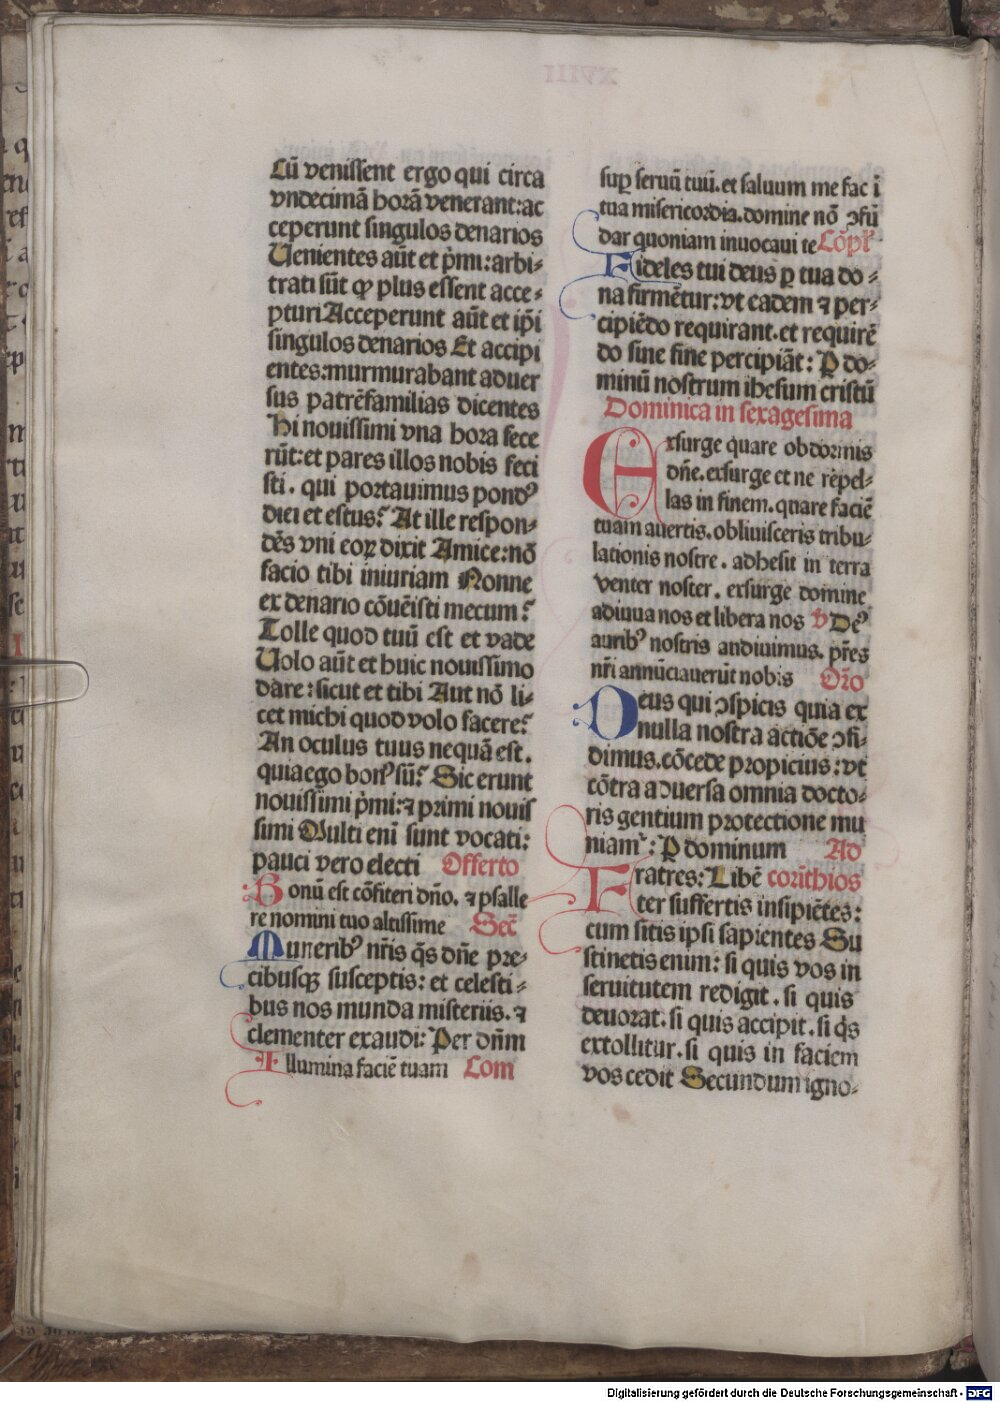 Cū venissent ergo qui circa
vndecimā horā venerant: ac
ceperunt singulos denarios
Uenientes aūt et p̄mi: arbi-
trati sūt qꝫ plus essent acce-
pturi Acceperunt aūt et ip̄i
singulos denarios Et accipi
entes: murmurabant aduer
sus patrēfamilias dicentes
Hi nouissimi vna hora fece
rūt: et pares illos nobis feci
sti. qui portauimus pondꝰ
diei et estus? At ille respon-
dēs vni eoꝝ dixit Amice: nō
facio tibi iniuriam Nonne
ex denario cōuēisti mecum?
Tolle quod tuū est et vade
Uolo aūt et huic nouissimo
dare: sicut et tibi Aut nō li-
cet michi quod volo facere?
An oculus tuus nequā est.
quia ego bonꝰ sū? Sic erunt
nouissimi p̄mi: ⁊ primi nouis
simi Multi enī sunt vocati:
pauci vero electi Offerto
Bonū est cōfiteri dn̄o. ⁊ psalle
re nomini tuo altissime Sec̄
Muneribꝰ nr̄is q̄s dn̄e pre-
cibusqꝫ susceptis: et celesti-
bus nos munda misteriis. ⁊
clementer exaudi: Per dn̄m
Illumina faciē tuam Com
suꝑ seruū tuū. et saluum me fac ī
tua misericordia. domine nō ꝯfū
dar quoniam inuocaui te Cōpl̄
Fideles tui deus ꝑ tua do-
na firmētur: vt eadem ⁊ per-
cipiēdo requirant. et requirē
do sine fine percipiāt: P do-
minū nostrum ihesum cristū
Dominica in sexagesima
Exsurge quare obdormis
dn̄e. exsurge et ne repel-
las in finem. quare faciē
tuam auertis. obliuisceris tribu-
lationis nostre. adhesit in terra
venter noster. exsurge domine
adiuua nos et libera nos v̄ Deꝰ
auribꝰ nostris audiuimus. pr̄es
nr̄i annūciauerūt nobis Or̄o
Deus qui ꝯspicis quia ex
nulla nostra actiōe ꝯfi-
dimus. cōcede propicius: vt
cōtra aduersa omnia docto-
ris gentium protectione mu
niamur: P dominum Ad
Fratres: Libē corīthios
ter suffertis insipiētes:
cum sitis ipsi sapientes Su
stinetis enim: si quis vos in
seruitutem redigit. si quis
deuorat. si quis accipit. si q̄s
extollitur. si quis in faciem
vos cedit Secundum igno-
Digitalisierung gefördert durch die Deutsche Forschungsgemeinschaft - DFG